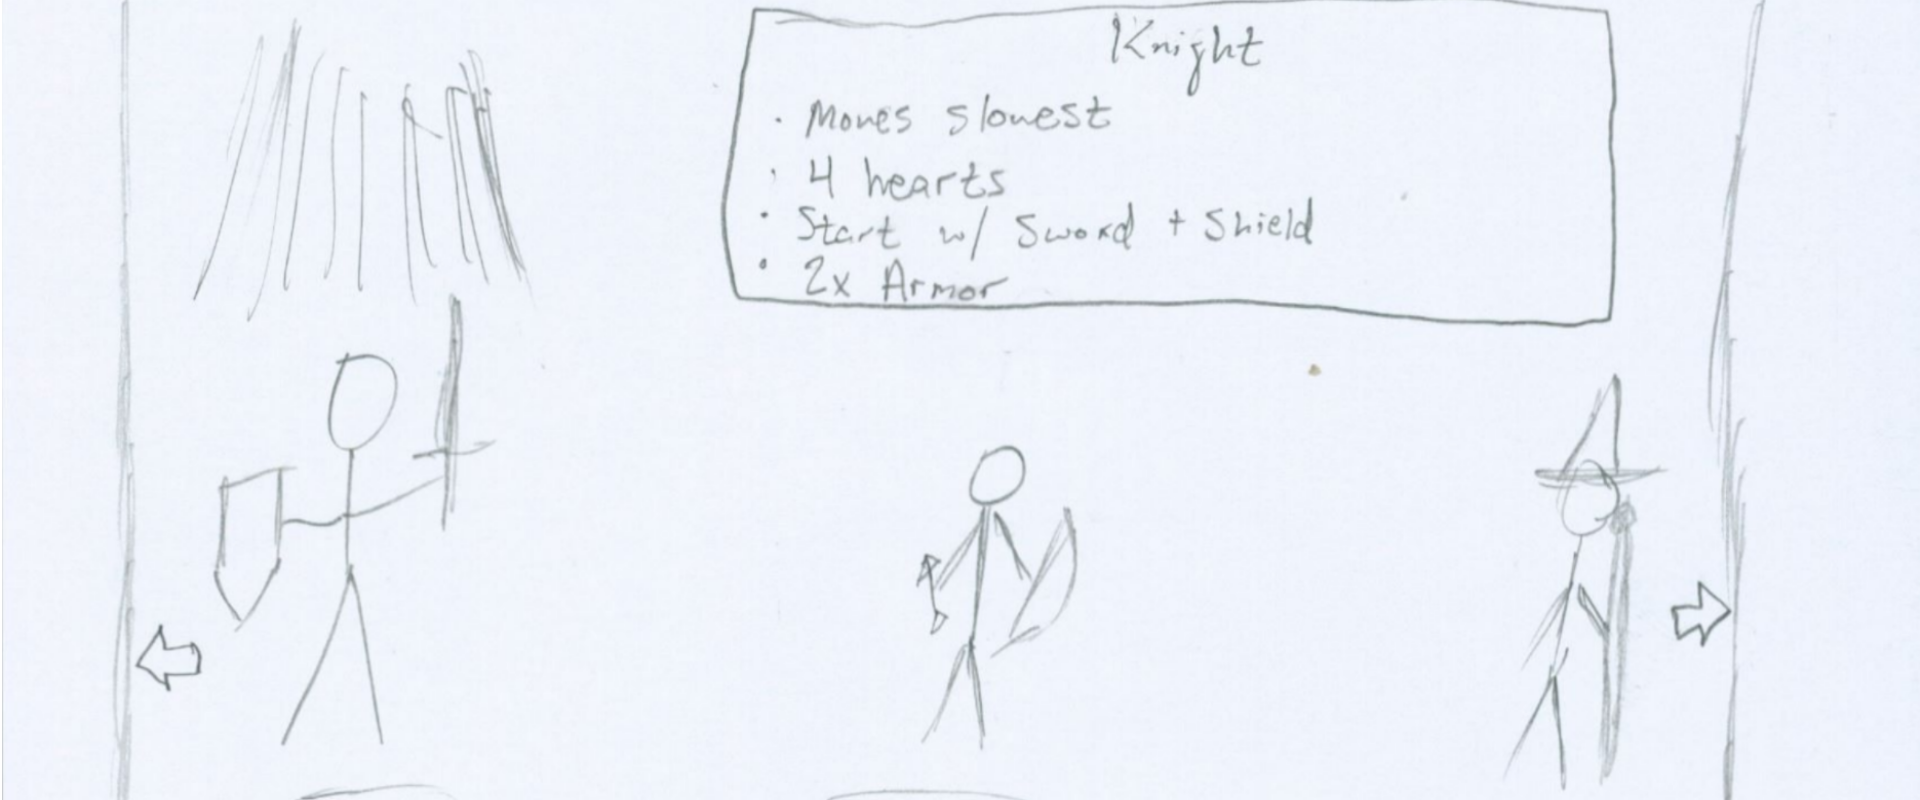 Knight
· Moves slowest
· 4 hearts
· Start w/ Sword + Shield
· 2x Armor